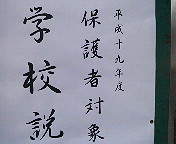 平成十九年度
保護者対象
学校説